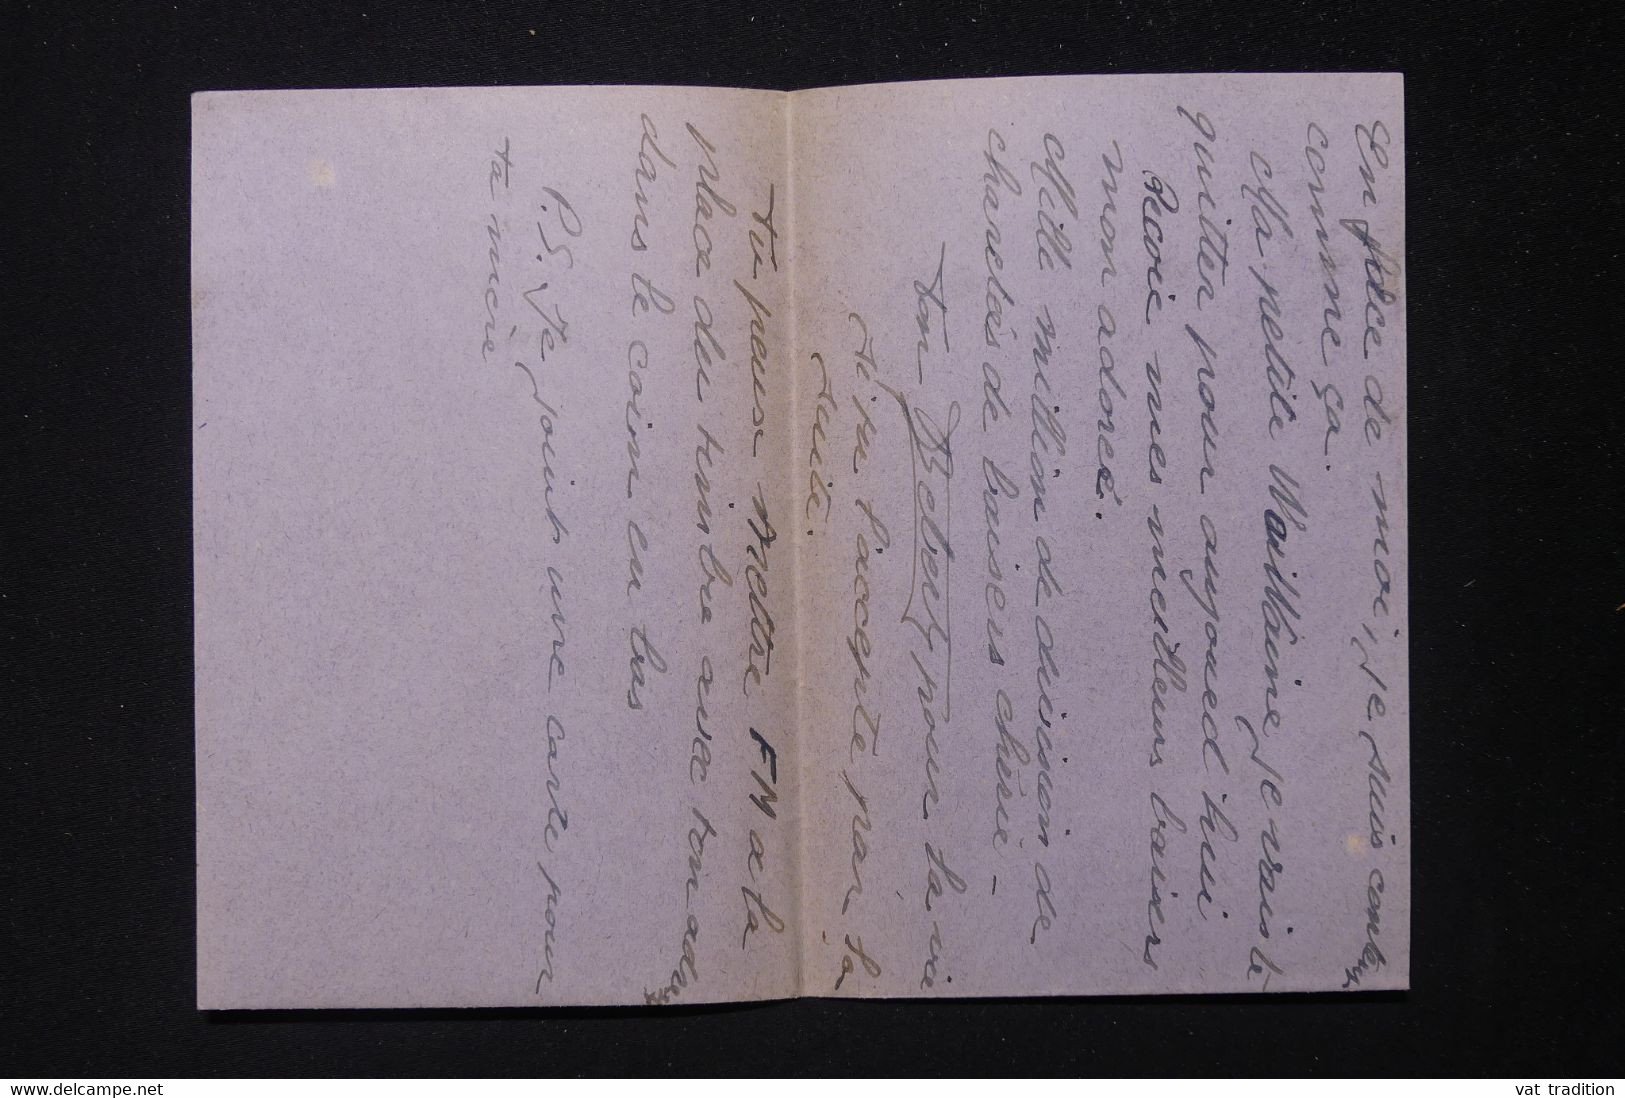 En place de moi, je suis contente
comme ça.
Ma petite je vais te
quitter pour aujoued hui
Recoie mes meilleurs baisers
mon adoreé.
Mille millión de division de
charetés de baisers chérie -
ton Bebert pour la vie
Ai su l'accepte par la
suite.
Tu peux Mettre FM a la
place du timbre avec ton adresse
dans le coin en bas
P.S. Je joint une carte pour
ta mère
www.delcampe.net
vat tradition